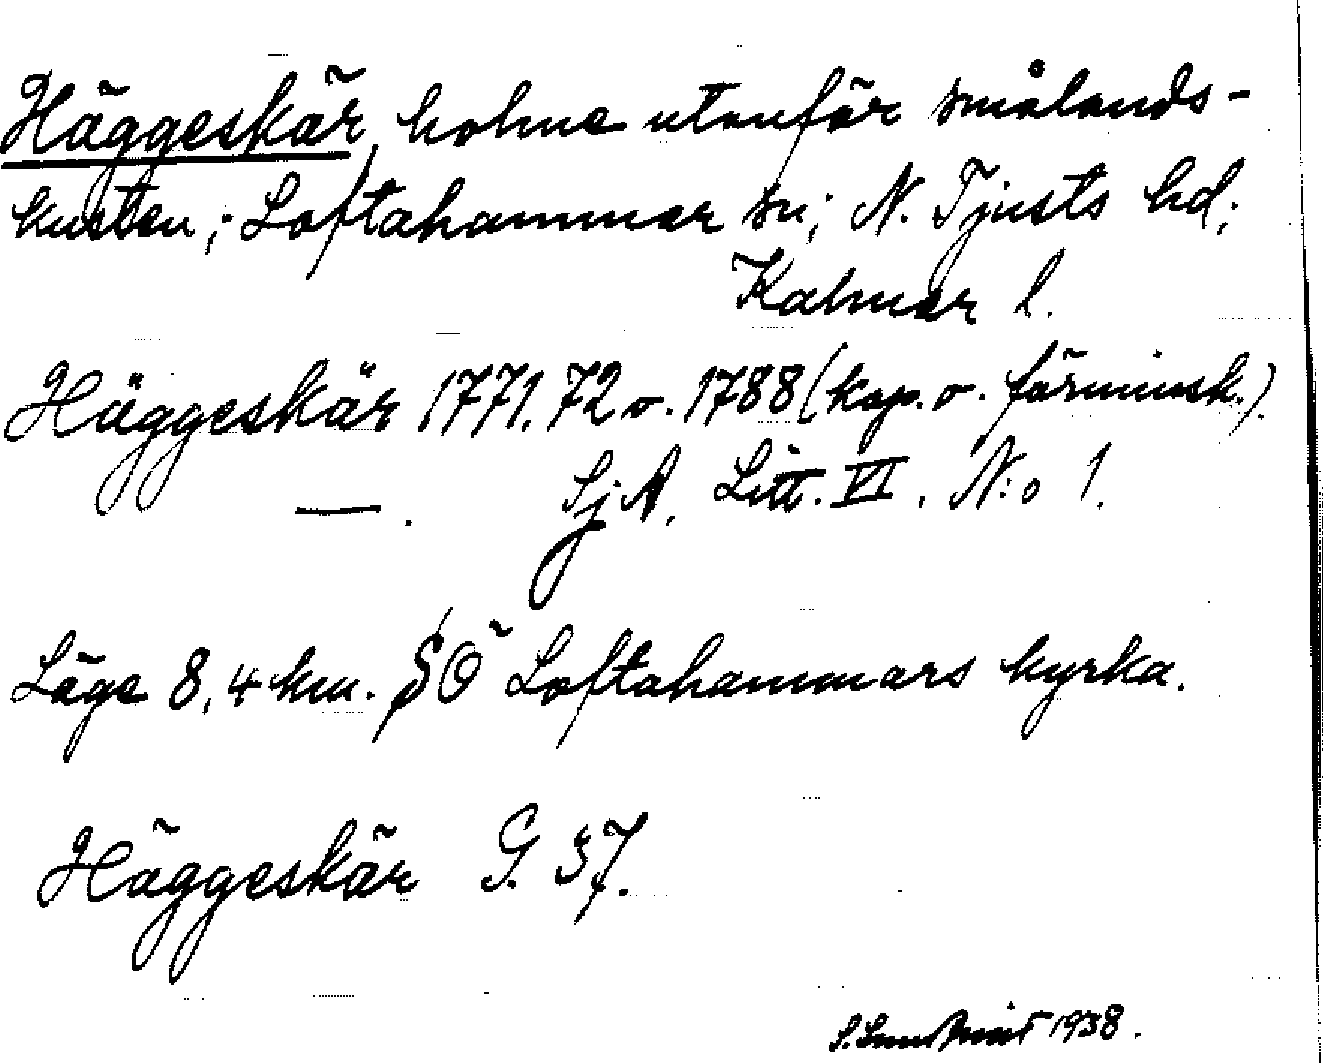 Häggeskär, holme utanför smålands-
kusten; Loftahammar sn; N. Tjusts hd;
Kalmar l.
Häggeskär 1771, 72 o. 1788 (kop. o. förminsk.)
—. SjA, Litt. VI, N:o 1.
Läge 8,4 km. SÖ Loftahammars kyrka.
Häggeskär G. 37.
S. 1938.